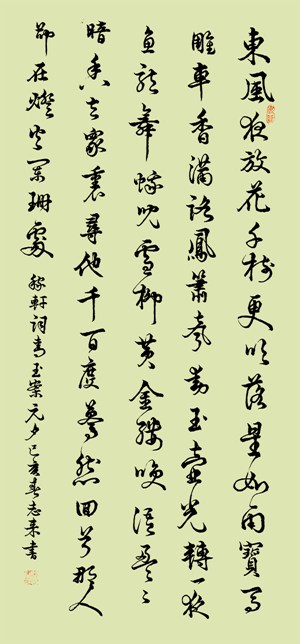 東風夜放花千樹更吹落星如雨寶馬
雕車香滿路鳳簫聲動玉壺光轉一夜
魚龍舞蛾兒雪柳黃金縷笑語盈々
暗香去眾裏尋他千百度驀然回首那人
卻在燈火闌珊處 稼軒詞青玉案元夕己亥春志来書